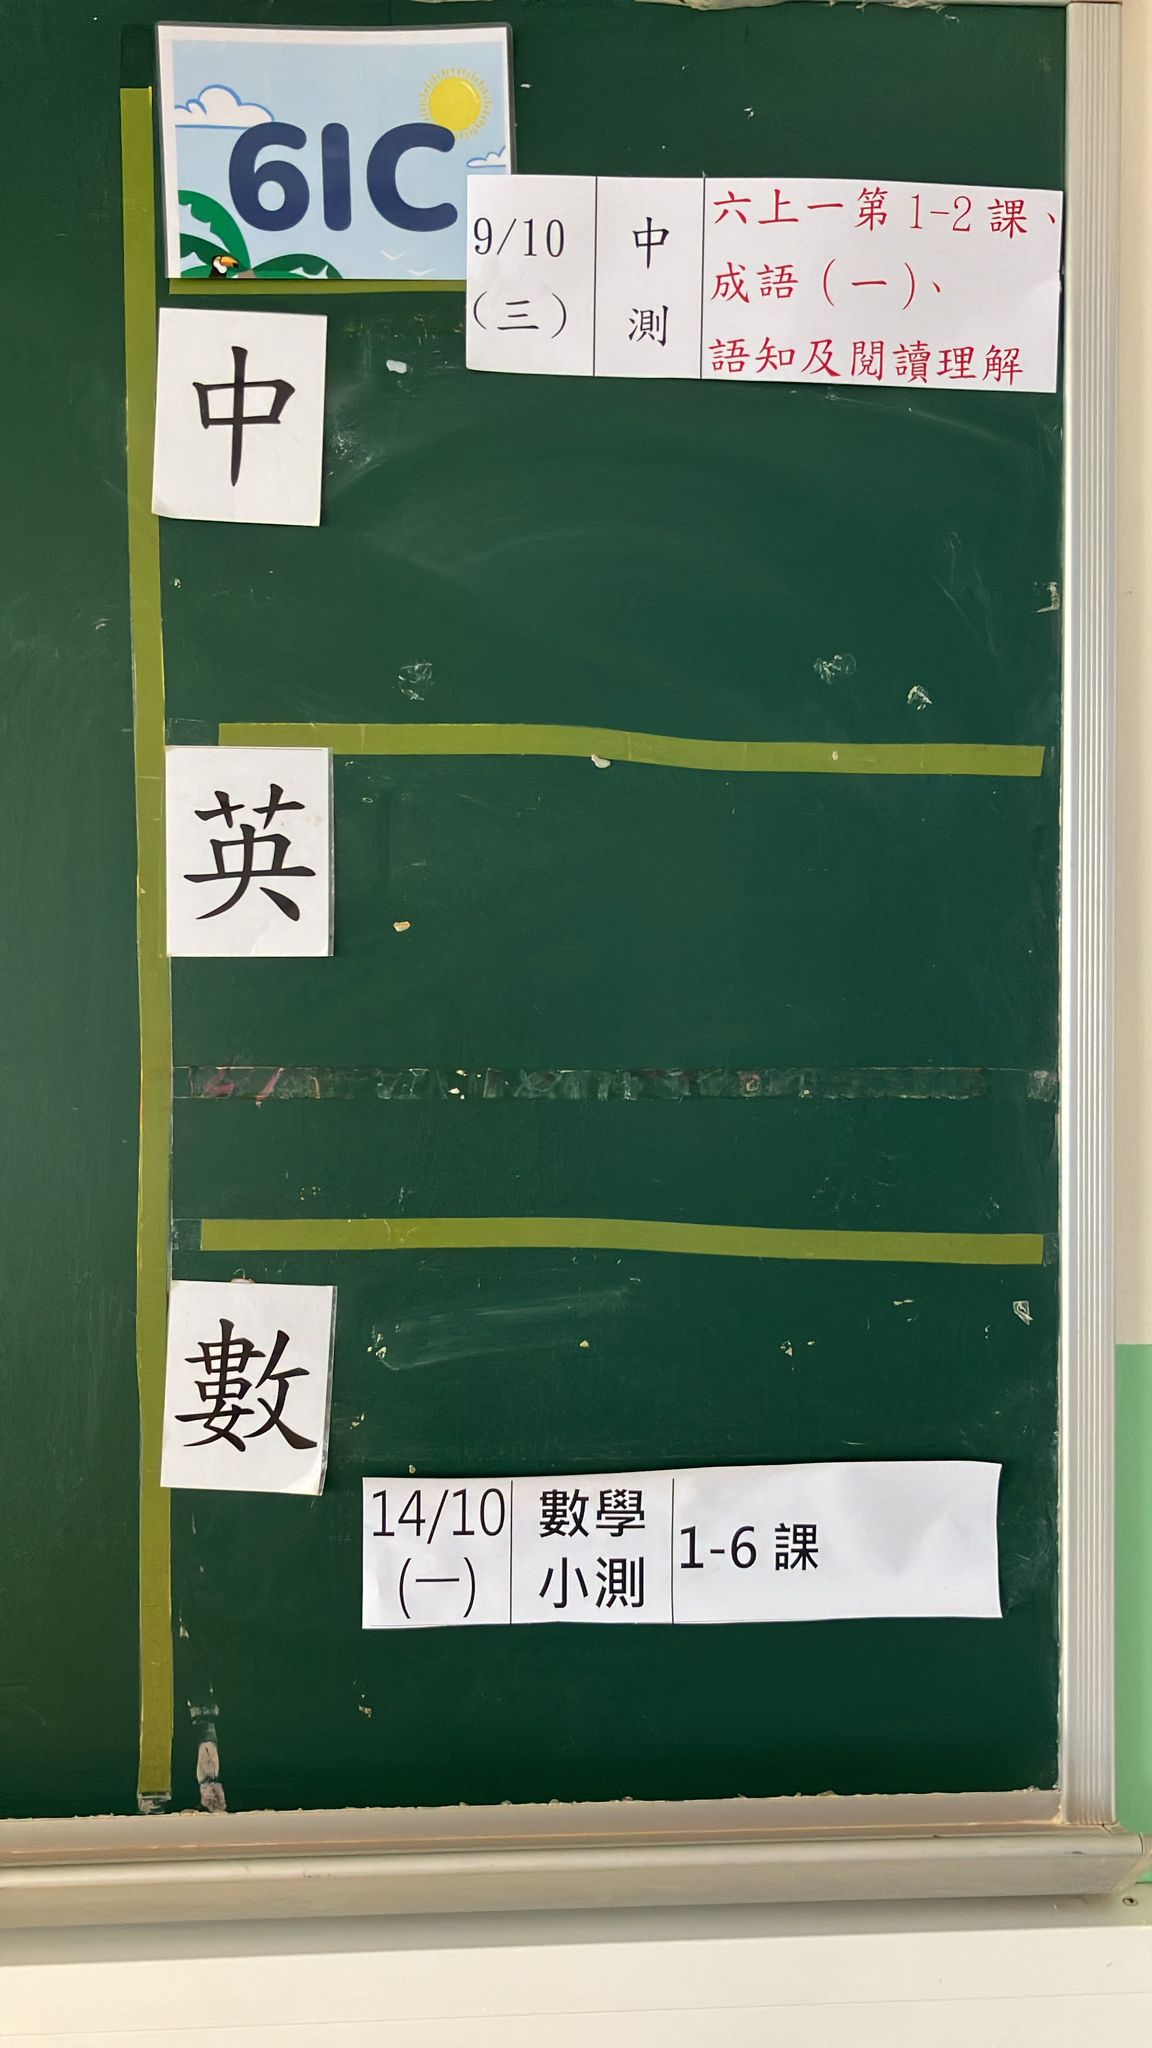 6IC
9/10
（三）
中
測
六上一第 1-2 課、
成語（一）、
語知及閱讀理解
中
英
數
14/10
(一)
數學
小測
1-6 課